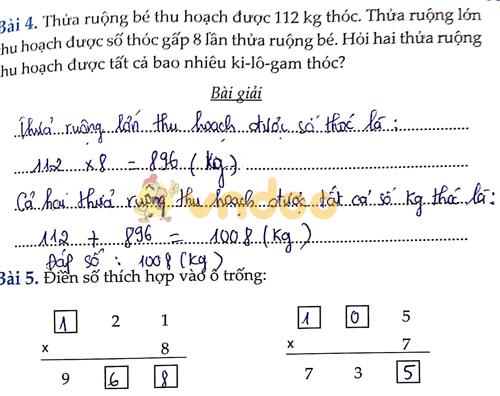 Bài 4. Thửa ruộng bé thu hoạch được 112 kg thóc. Thửa ruộng lớn
thu hoạch được số thóc gấp 8 lần thửa ruộng bé. Hỏi hai thửa ruộng
thu hoạch được tất cả bao nhiêu ki-lô-gam thóc?
Bài giải
Thửa ruộng lớn thu hoạch được số thóc là:
112 x 8 = 896 (kg)
Cả hai thửa ruộng thu hoạch được tất cả số kg thóc là:
112 + 896 = 1008 (kg)
Đáp số : 1008 (kg)
Bài 5. Điền số thích hợp vào ô trống:
1 2 1
x 8
9 6 8
1 0 5
x 7
7 3 5